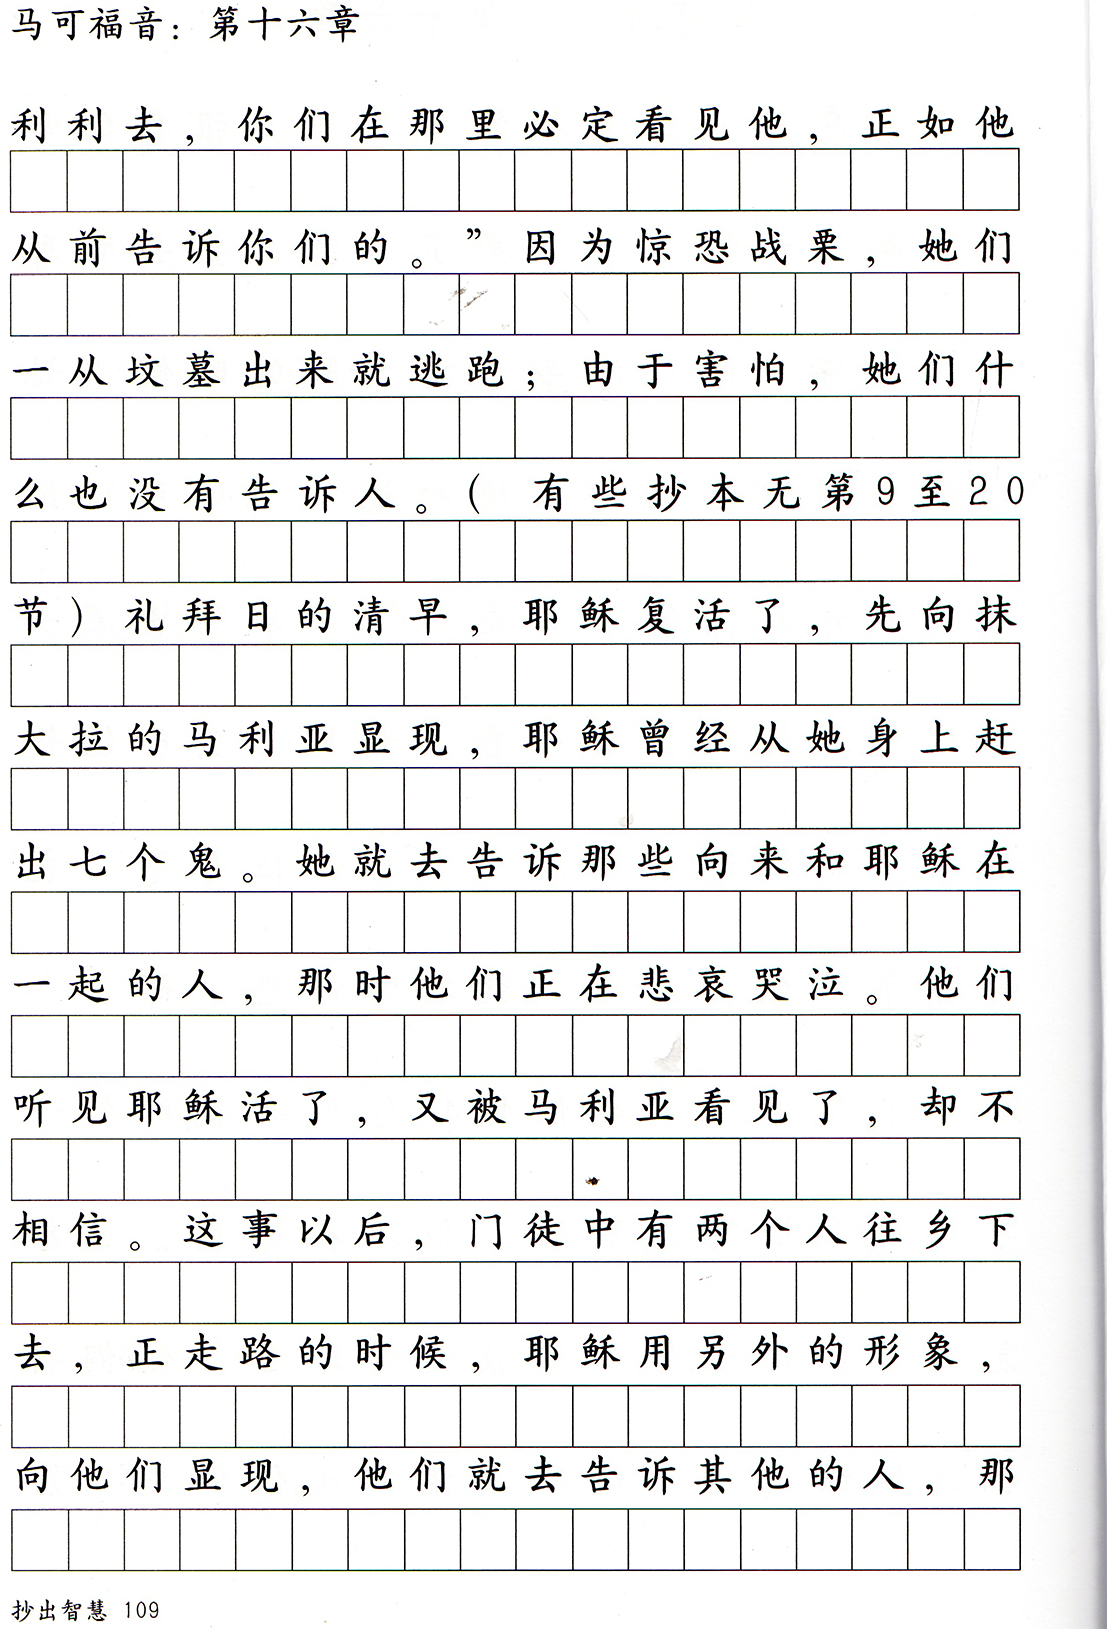 马可福音：第十六章
利利去，你们在那里必定看见他，正如他
从前告诉你们的。”因为惊恐战栗，她们
一从坟墓出来就逃跑；由于害怕，她们什
么也没有告诉人。（有些抄本无第9至20
节）礼拜日的清早，耶稣复活了，先向抹
大拉的马利亚显现，耶稣曾经从她身上赶
出七个鬼。她就去告诉那些向来和耶稣在
一起的人，那时他们正在悲哀哭泣。他们
听见耶稣活了，又被马利亚看见了，却不
相信。这事以后，门徒中有两个人往乡下
去，正走路的时候，耶稣用另外的形象，
向他们显现，他们就去告诉其他的人，那
抄出智慧 109